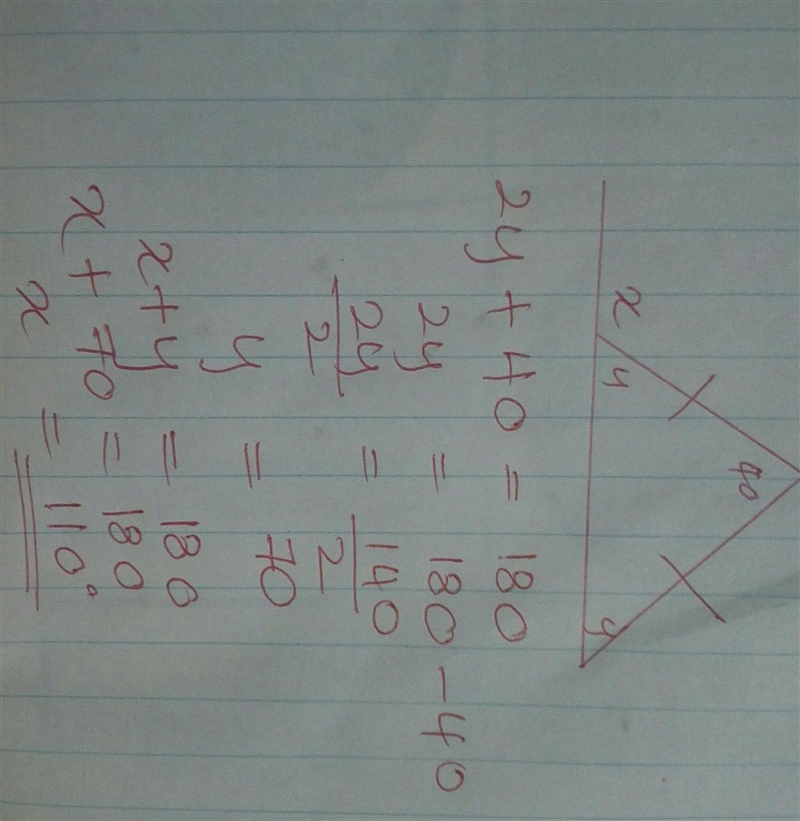 40
x y y
2y + 40 = 180
2y = 180 - 40
2y/2 = 140/2
y = 70
x + y = 180
x + 70 = 180
x = 110°